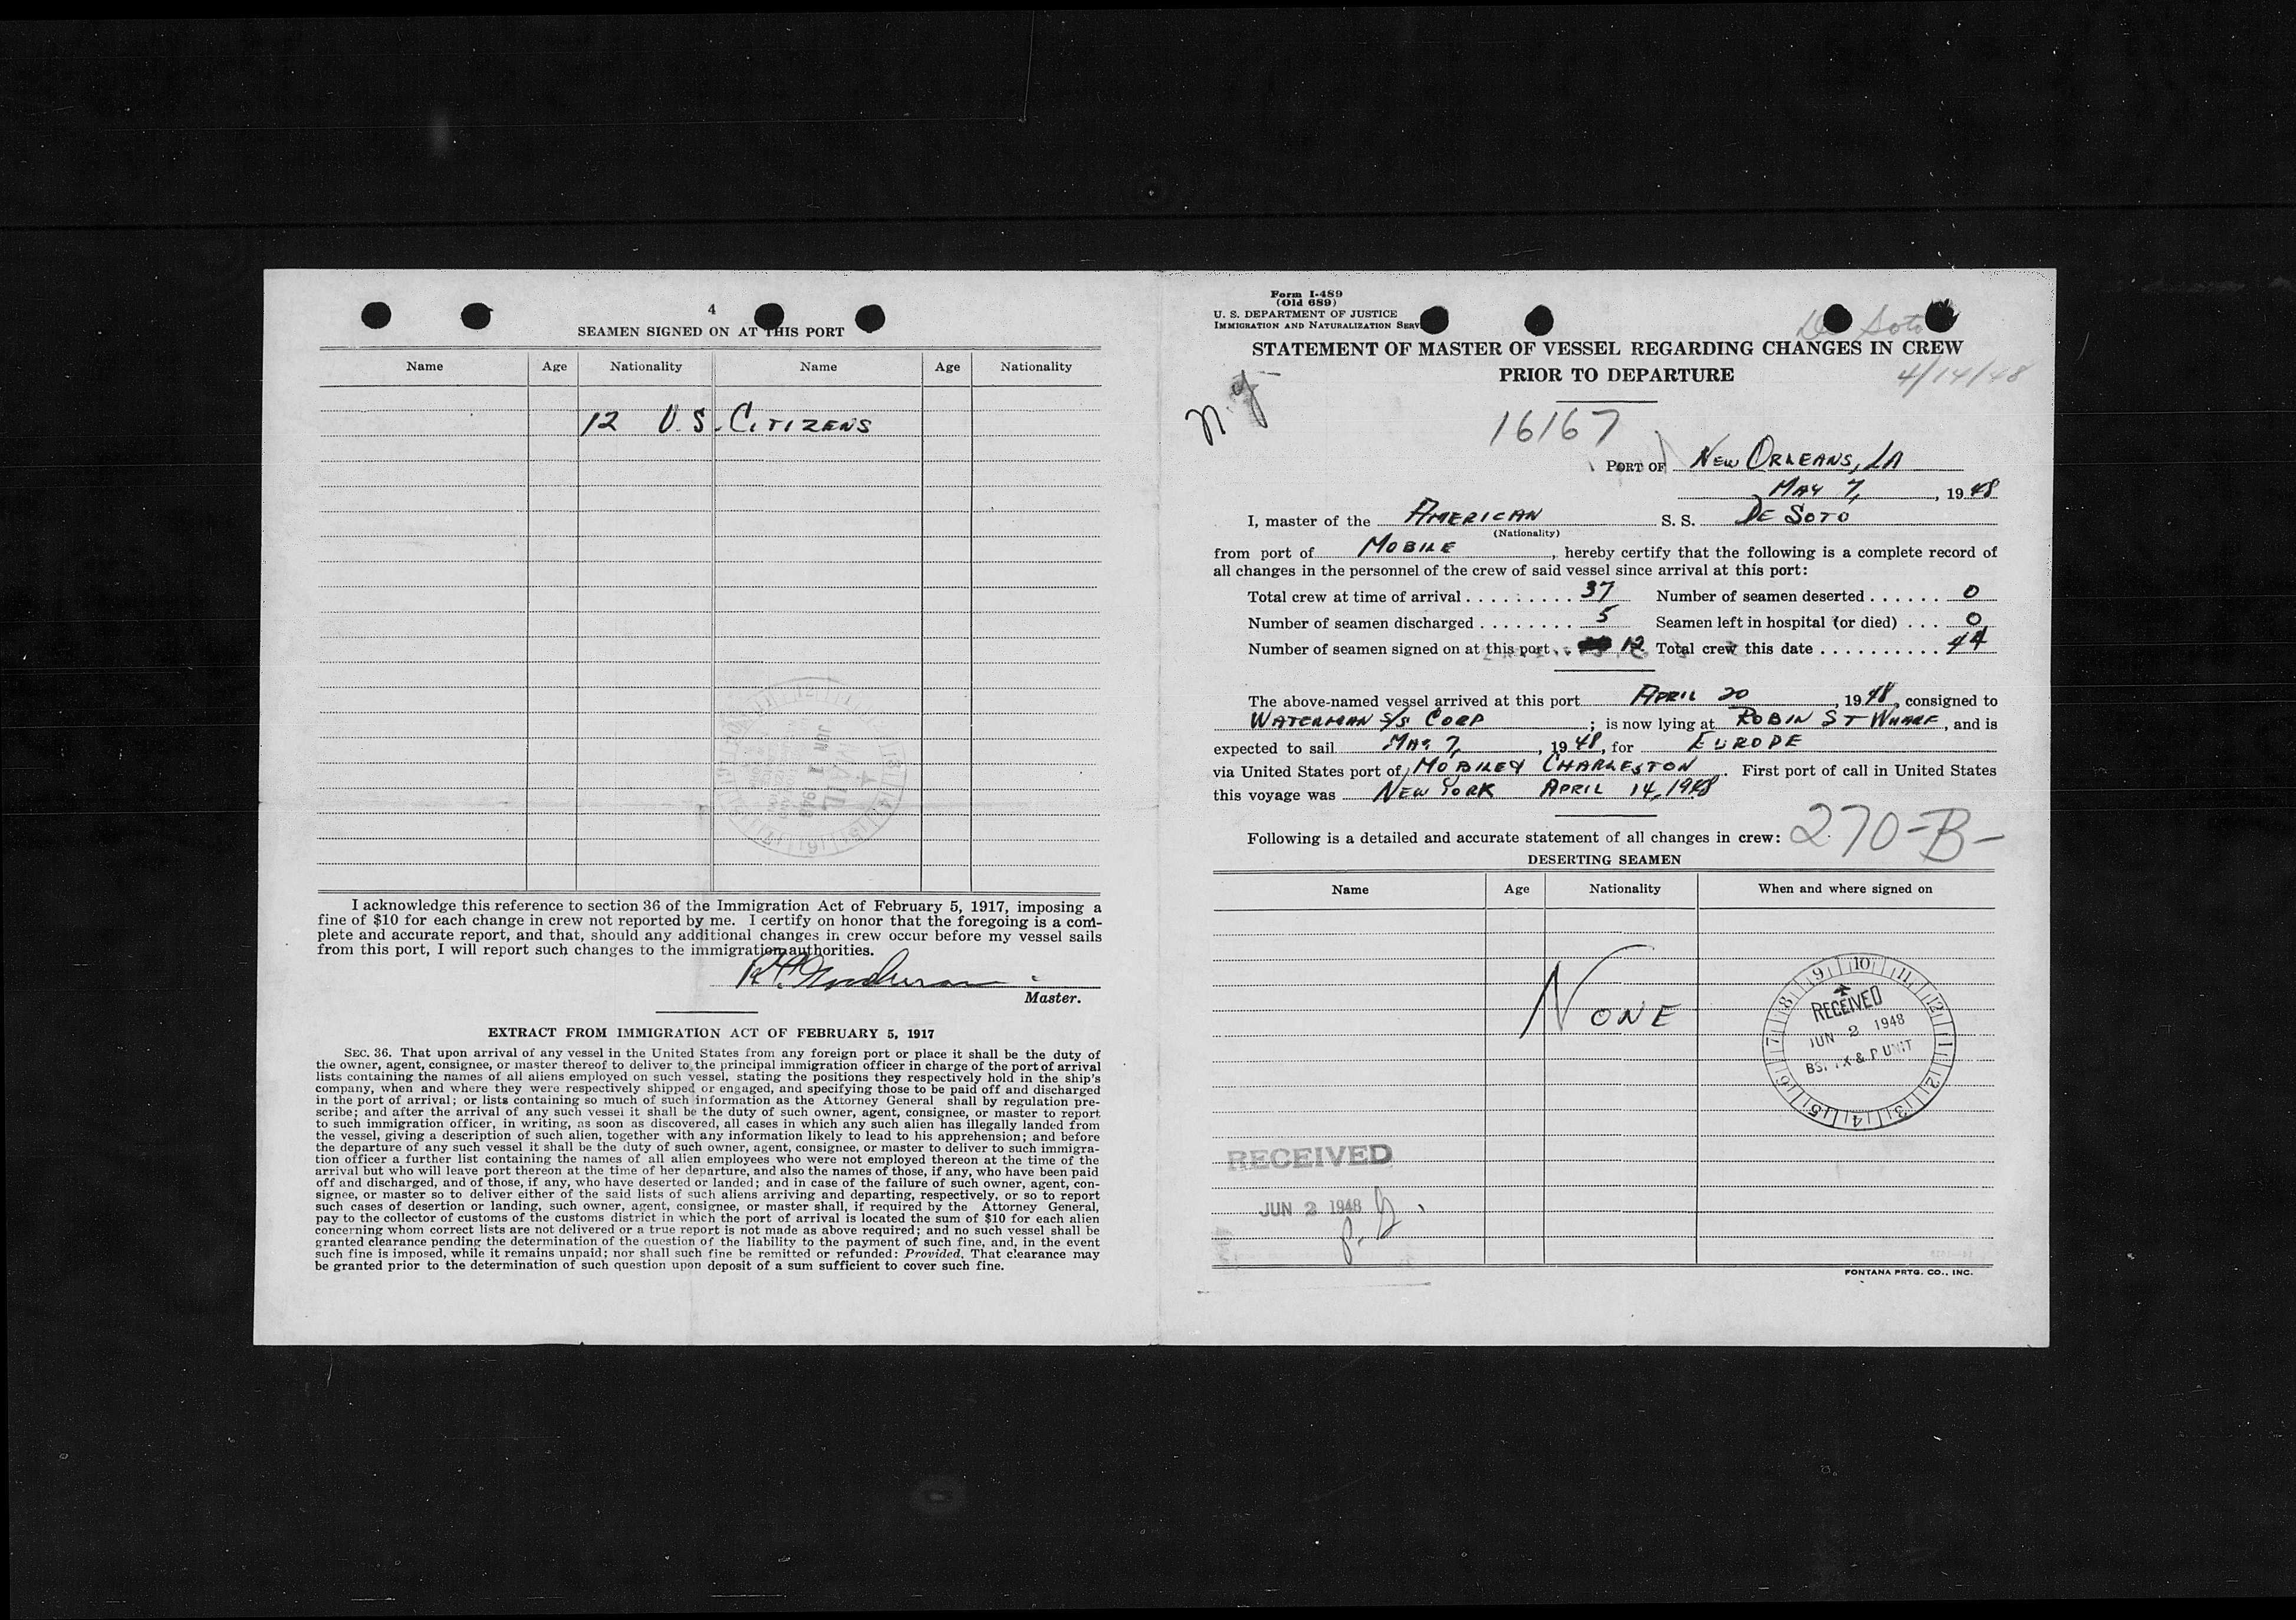 4
SEAMEN SIGNED ON AT THIS PORT
Name Age Nationality Name Age Nationality
12 U.S. CITIZENS
I acknowledge this reference to section 36 of the Immigration Act of February 5, 1917, imposing a
fine of $10 for each change in crew not reported by me. I certify on honor that the foregoing is a com-
plete and accurate report, and that, should any additional changes in crew occur before my vessel sails
from this port, I will report such changes to the immigration authorities.
Master.
EXTRACT FROM IMMIGRATION ACT OF FEBRUARY 5, 1917
SEC. 36. That upon arrival of any vessel in the United States from any foreign port or place it shall be the duty of
the owner, agent, consignee, or master thereof to deliver to the principal immigration officer in charge of the port of arrival
lists containing the names of all aliens employed on such vessel, stating the positions they respectively hold in the ship's
company, when and where they were respectively shipped or engaged, and specifying those to be paid off and discharged
in the port of arrival; or lists containing so much of such information as the Attorney General shall by regulation pre-
scribe; and after the arrival of any such vessel it shall be the duty of such owner, agent, consignee, or master to report
to such immigration officer, in writing, as soon as discovered, all cases in which any such alien has illegally landed from
the vessel, giving a description of such alien, together with any information likely to lead to his apprehension; and before
the departure of any such vessel it shall be the duty of such owner, agent, consignee, or master to deliver to such immigra-
tion officer a further list containing the names of all alien employees who were not employed thereon at the time of the
arrival but who will leave port thereon at the time of her departure, and also the names of those, if any, who have been paid
off and discharged, and of those, if any, who have deserted or landed; and in case of the failure of such owner, agent, con-
signee, or master so to deliver either of the said lists of such aliens arriving and departing, respectively, or so to report
such cases of desertion or landing, such owner, agent, consignee, or master shall, if required by the Attorney General,
pay to the collector of customs of the customs district in which the port of arrival is located the sum of $10 for each alien
concerning whom correct lists are not delivered or a true report is not made as above required; and no such vessel shall be
granted clearance pending the determination of the question of the liability to the payment of such fine, and, in the event
such fine is imposed, while it remains unpaid; nor shall such fine be remitted or refunded: Provided, That clearance may
be granted prior to the determination of such question upon deposit of a sum sufficient to cover such fine.
Form I-489
(Old 689)
U. S. DEPARTMENT OF JUSTICE
IMMIGRATION AND NATURALIZATION SERV
De Soto
STATEMENT OF MASTER OF VESSEL REGARDING CHANGES IN CREW
PRIOR TO DEPARTURE
4/14/48
n.y
16167
PORT OF NEW ORLEANS, LA
MAY 7, 1948
I, master of the AMERICAN S. S. DE SOTO
(Nationality)
from port of MOBILE, hereby certify that the following is a complete record of
all changes in the personnel of the crew of said vessel since arrival at this port:
Total crew at time of arrival . . . . . . . . . 37 Number of seamen deserted . . . . . . 0
Number of seamen discharged . . . . . . . . 5 Seamen left in hospital (or died) . . . 0
Number of seamen signed on at this port . . 12 Total crew this date . . . . . . . . . . 44
The above-named vessel arrived at this port APRIL 20, 1948, consigned to
WATERMAN S/S CORP; is now lying at ROBIN ST WHARF, and is
expected to sail MAY 7, 1948, for EUROPE
via United States port of MOBILE & CHARLESTON. First port of call in United States
this voyage was NEW YORK APRIL 14, 1948
Following is a detailed and accurate statement of all changes in crew: 270-B-
DESERTING SEAMEN
Name Age Nationality When and where signed on
NONE
9 10 11 12 1 2 3 4 5 6 7 8
RECEIVED
JUN 2 1948
RECEIVED
JUN 2 1948
FONTANA PRTG. CO., INC.